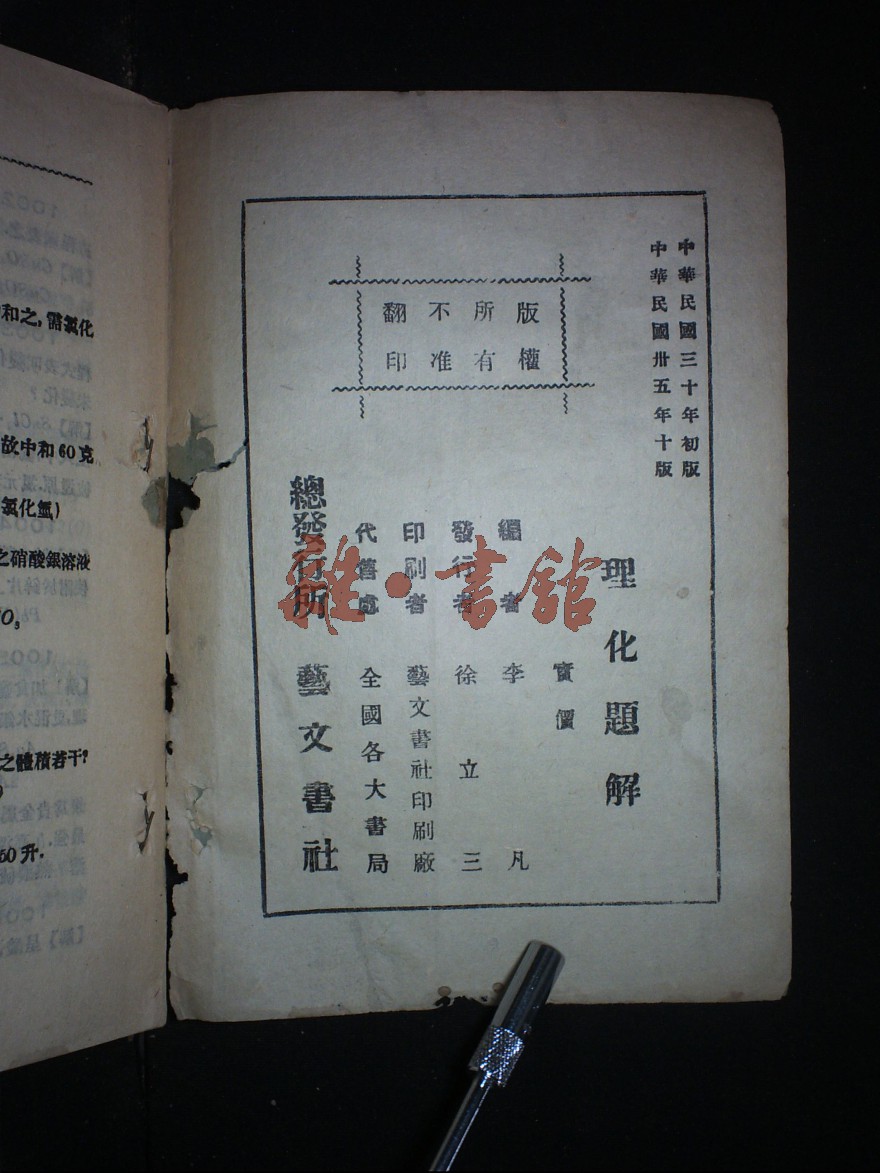 中華民國三十年初版
中華民國卅五年十版
版權
所有
不准
翻印
理化題解
實價
編者 李凡
發行者 徐立三
印刷者 藝文書社印刷廠
代售處 全國各大書局
總發行所 藝文書社
雜·書館
和之,需氯化
故中和60克
氯化氫)
之硝酸銀溶液
O₃
之體積若干?
60升.